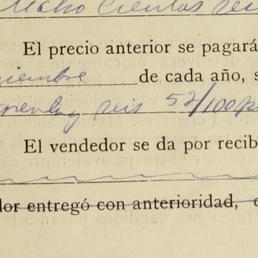 ocho cientos sei
El precio anterior se pagará
iembre de cada año, s
seis 52/100 p
El vendedor se da por recib
dor entregó con anterioridad,